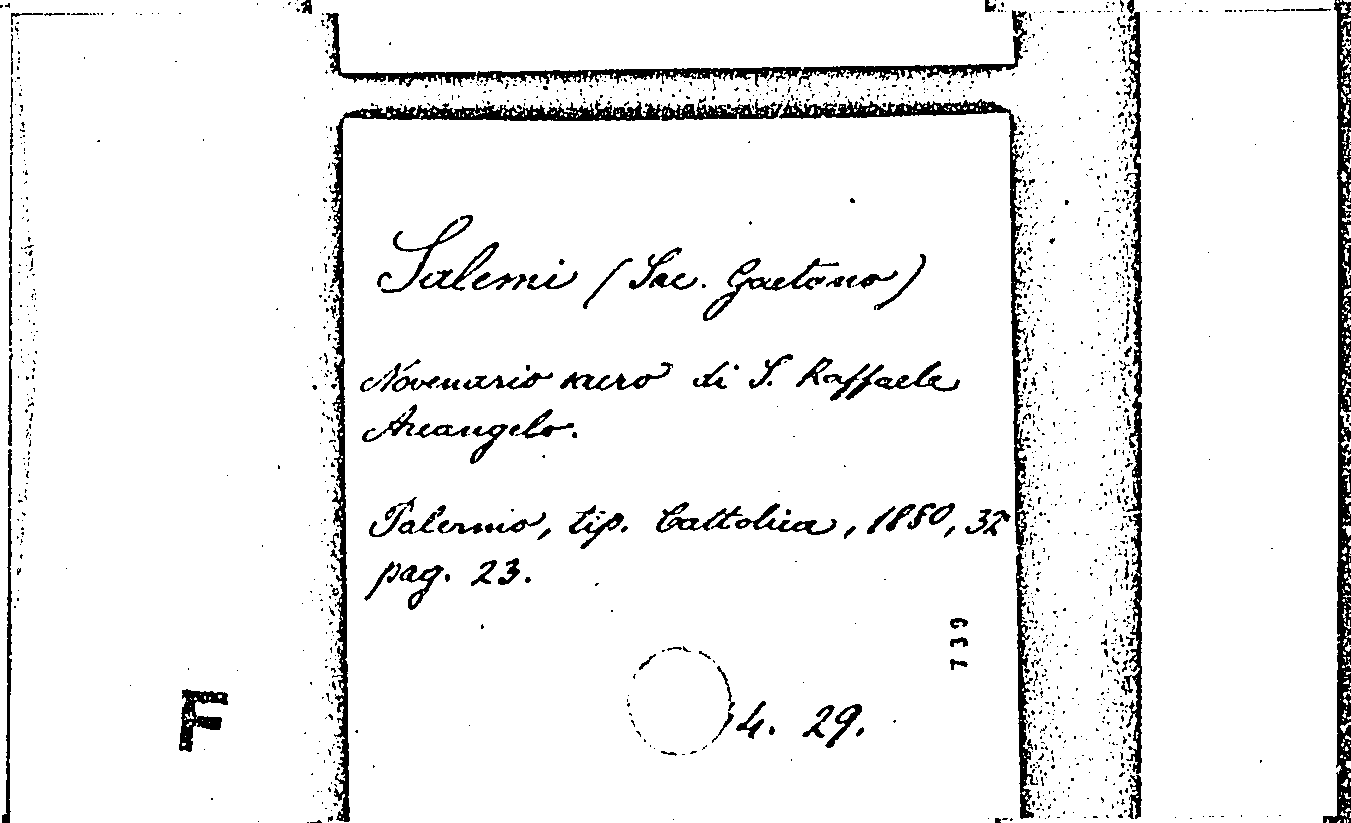 Salemi (Sac. Gaetano)
Novenario sacro di S. Raffaele
Arcangelo.
Palermo, tip. Cattolica, 1880, 32°
pag. 23.
739
4. 29.
F